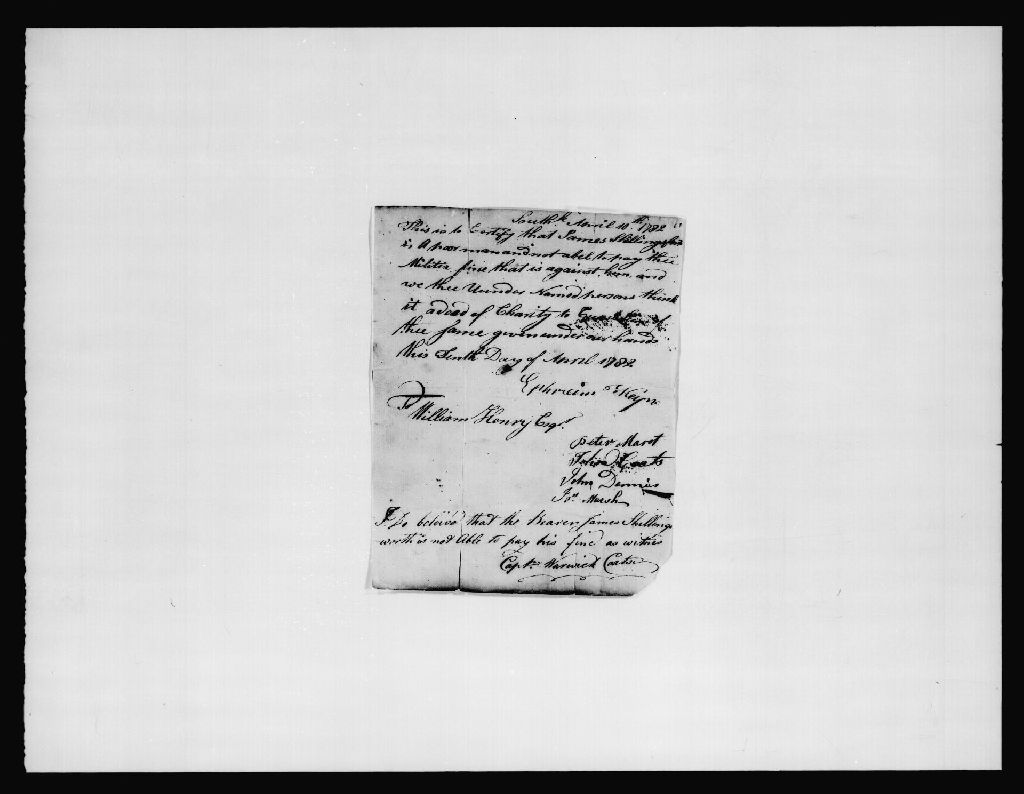 April 10th 1782
This is to Certify that James Shillingsworth
is A poor man and not abel to pay thee
Militia fine that is against him and
we thee Uunder Named persons think
it a deed of Charity to
thee same given under our hands
this Tenth Day of April 1782
Ephreim
To
William Henry Esqr.
peter Maret
John Dennis
Jos. Marsh
I Do beleive that the Bearer James Shillings
worth is not Able to pay his fine as witnes
Captn. Warwick Coats